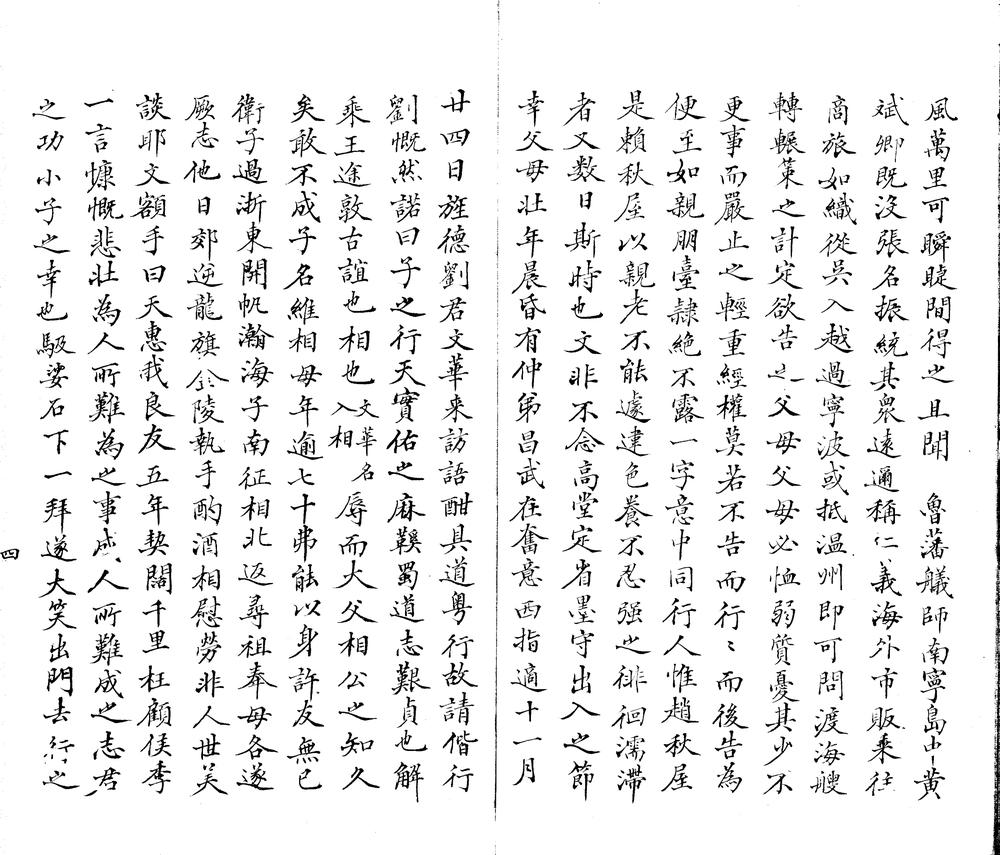 風萬里可瞬睫間得之且聞　魯藩艤師南寧島中黃
斌卿既沒張名振統其衆遠邇稱仁義海外市販乘往
商旅如織從吳入越過寧波或抵温州即可問渡海艘
轉輾策之計定欲告之父母父母必恤弱質憂其少不
更事而嚴止之輕重經權莫若不告而行〻而後告為
便至如親朋臺隷絕不露一字意中同行人惟趙秋屋
是賴秋屋以親老不能遽違色養不忍强之徘徊濡滯
者又数日斯時也文非不念高堂定省墨守出入之節
幸父母壯年晨昏有仲弟昌武在奮意西指適十一月
廿四日旌德劉君文華来訪語酣具道粤行故請偕行
劉慨然諾曰子之行天實佑之麻鞵蜀道志艱貞也解
乘王途敦古誼也相也文華名入相辱而大父相公之知久
矣敢不成子名維相母年逾七十弗能以身許友無已
衛子過浙東開帆瀚海子南征相北返尋祖奉母各遂
厥志他日郊逆龍旗金陵執手酌酒相慰勞非人世美
談耶文額手曰天惠我良友五年契闊千里枉顧侯季
一言慷慨悲壯為人所難為之事成人所難成之志君
之功小子之幸也馺娑石下一拜遂大笑出門去行之
四